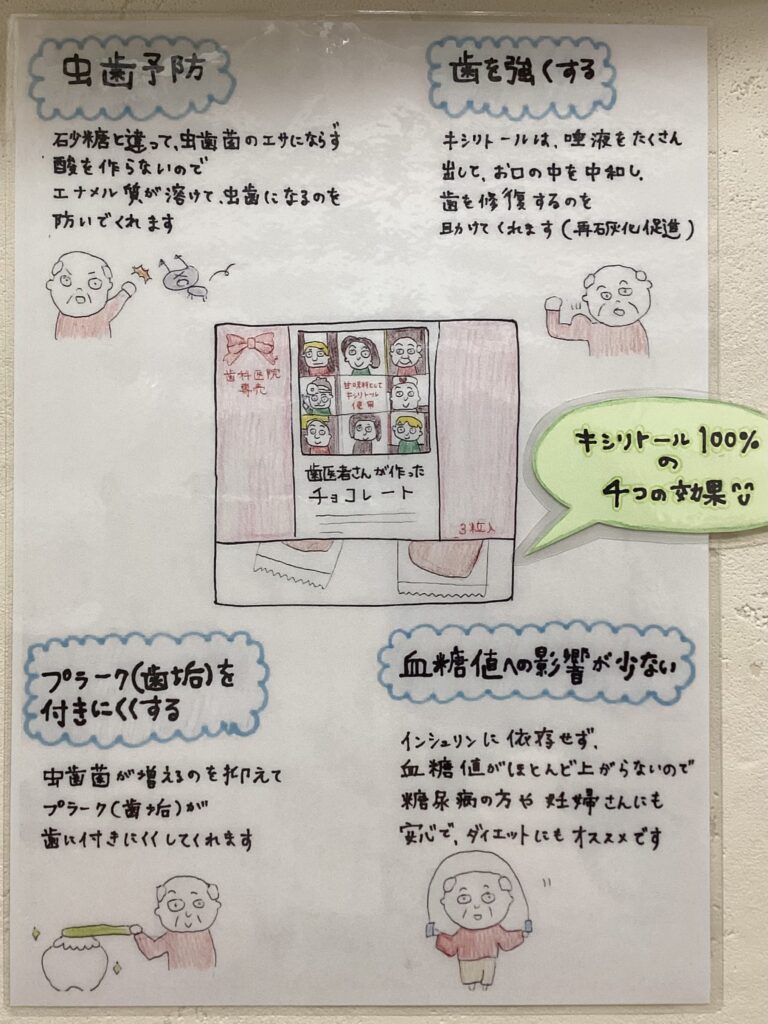 虫歯予防
石砂糖と違って、虫歯菌のエサにならず
酸を作らないので
エナメル質が溶けて、虫歯になるのを
防いでくれます
歯を強くする
キシリトールは、唾液をたくさん
出して、お口の中を中和し、
歯を修復するのを
助けてくれます(再石灰化促進)
歯科医院
専売
甘味料として
キシリトール
使用
歯医者さんが作った
チョコレート
3粒入
キシリトール100%
の
4つの効果
プラーク(歯垢)を
付きにくくする
虫歯菌が増えるのを抑えて
プラーク(歯垢)が
歯に付きにくくしてくれます
血糖値への影響が少ない
インシュリンに依存せず、
血糖値がほとんど上がらないので
糖尿病の方や妊婦さんにも
安心で、ダイエットにもオススメです